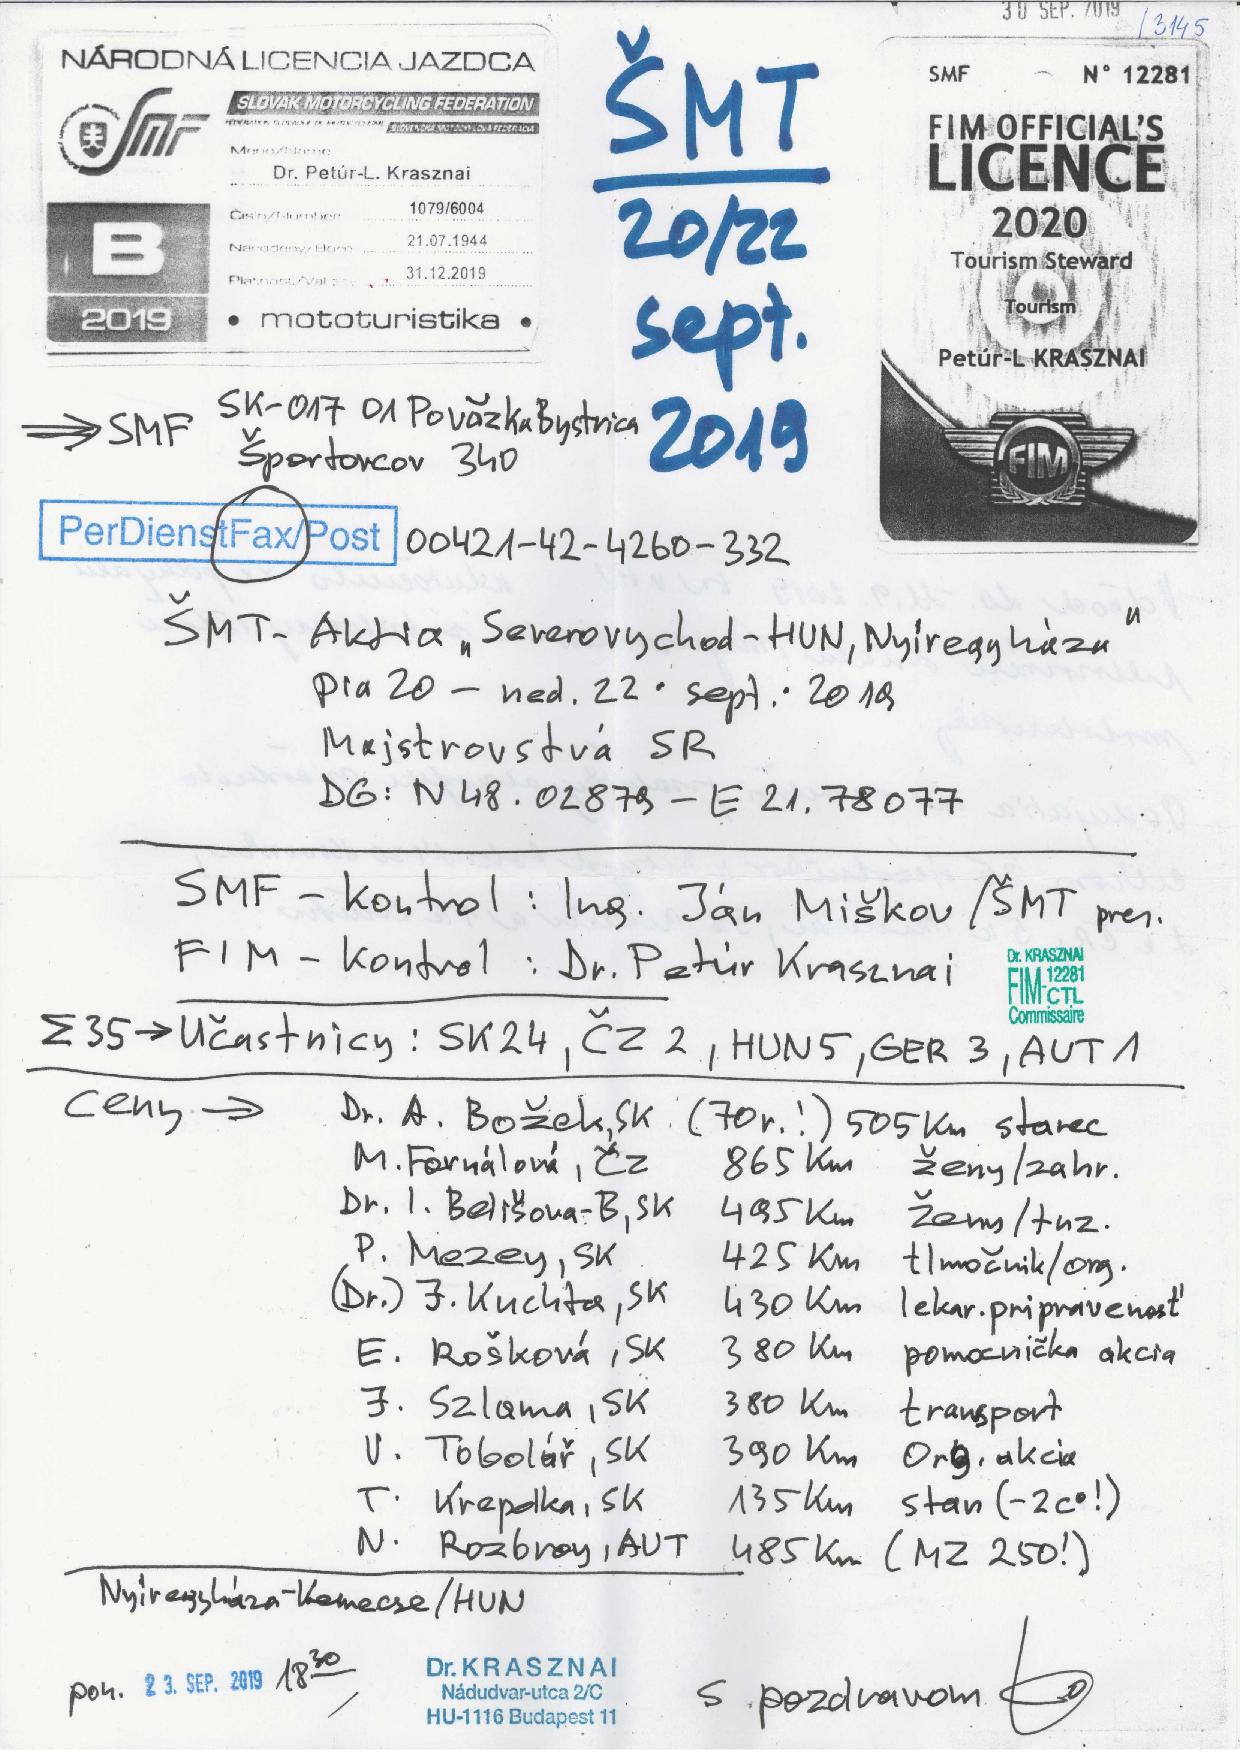 30 SEP. 2019
13145
NÁRODNÁ LICENCIA JAZDCA
SMF
SLOVAK MOTORCYCLING FEDERATION
SLOVENSKÁ MOTOCYKLOVÁ FEDERÁCIA
Meno/Name
Dr. Petúr-L. Krasznai
Číslo/Number 1079/6004
Narodený/Born 21.07.1944
Platnosť/Val 31.12.2019
B
2019
• mototuristika •
ŠMT
20/22
sept.
2019
SMF N° 12281
FIM OFFICIAL'S
LICENCE
2020
Tourism Steward
Tourism
Petúr-L KRASZNAI
FIM
⇒ SMF SK-017 01 Považka Bystrica
Športovcov 340
PerDienstFax/Post 00421-42-4260-332
ŠMT- Aktia „Severovychod-HUN, Nyíregyháza"
pia 20 - ned. 22. sept. 2019
Majstrovstvá SR
DG: N 48.02879 - E 21.78077
SMF - kontrol : Ing. Ján Miškov /ŠMT pres.
FIM - kontrol : Dr. Petúr Krasznai
Dr. KRASZNAI
FIM 12281
CTL
Commissaire
Σ35→ Učastnícy : SK24, ČZ 2, HUN5, GER 3, AUT 1
Ceny → Dr. A. Božek, SK (70r.!) 505 Km starec
M. Fornálová, ČZ 865 Km ženy/zahr.
Dr. I. Belišova-B, SK 495 Km ženy/tuz.
P. Mezey, SK 425 Km tlmočník/org.
(Dr.) J. Kuchta, SK 430 Km lekar. pripravenosť
E. Rošková, SK 380 Km pomocnička akcia
J. Szlama, SK 380 Km transport
V. Tobolář, SK 390 Km Org. akcia
T. Krepelka, SK 135 Km stan (-2c°!)
N. Rozbroy, AUT 485 Km (MZ 250!)
Nyíregyháza-Kemecse/HUN
pon. 23. SEP. 2019 18 30
Dr. KRASZNAI
Nádudvar-utca 2/C
HU-1116 Budapest 11
s pozdravom